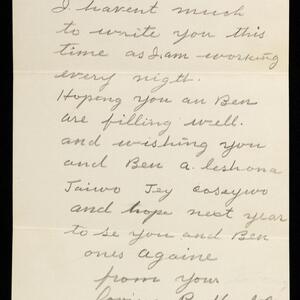 I havent much
to write you this
time as I am working
every nigth.
Hoping you an Ben
are filling well.
and wishing you
and Ben a. leshona
Taiwo Tey
and hope next year
to see you and Ben
ones againe
from your